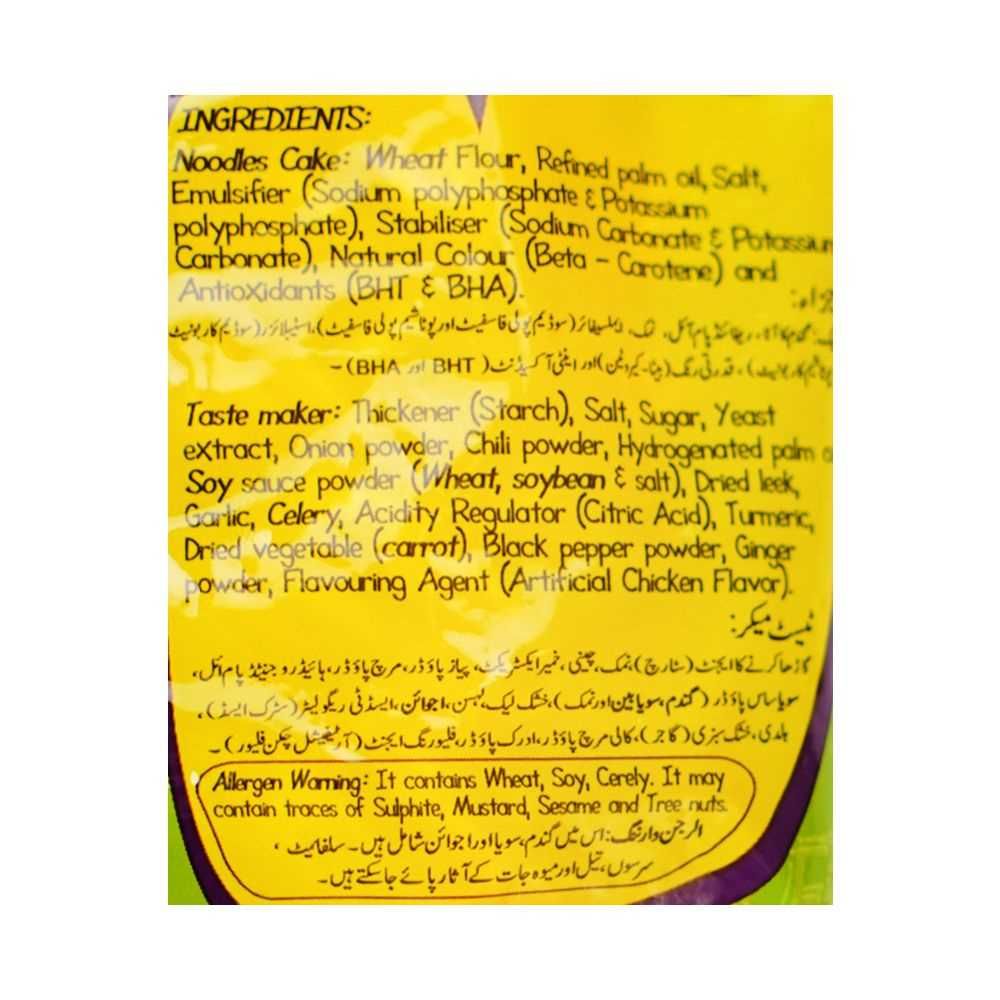 INGREDIENTS:
Noodles Cake: Wheat Flour, Refined palm oil, Salt,
Emulsifier (Sodium polyphosphate & Potassium
polyphosphate), Stabiliser (Sodium Carbonate & Potassium
Carbonate), Natural Colour (Beta - Carotene) and
Antioxidants (BHT & BHA).
آئل، نمک، ایملسیفائر (سوڈیم پولی فاسفیٹ اور پوٹاشیم پولی فاسفیٹ)، اسٹیبلائزر (سوڈیم کاربونیٹ
قدرتی رنگ (بیٹا-کیروٹین) اور اینٹی آکسیڈنٹ (BHT اور BHA)-
Taste maker: Thickener (Starch), Salt, Sugar, Yeast
extract, Onion powder, Chili powder, Hydrogenated palm
Soy sauce powder (Wheat, soybean & salt), Dried leek,
Garlic, Celery, Acidity Regulator (Citric Acid), Turmeric,
Dried vegetable (carrot), Black pepper powder, Ginger
powder, Flavouring Agent (Artificial Chicken Flavor).
ٹیسٹ میکر:
گاڑھا کرنے کا ایجنٹ (سٹارچ)، نمک، چینی، خمیر ایکسٹریکٹ، پیاز پاؤڈر، مرچ پاؤڈر، ہائیڈروجنیٹڈ پام آئل،
سویا ساس پاؤڈر (گندم، سویابین اور نمک)، خشک لیک، لہسن، اجوائن، ایسڈٹی ریگولیٹر (سٹرک ایسڈ)،
ہلدی، خشک سبزی (گاجر)، کالی مرچ پاؤڈر، ادرک پاؤڈر، فلیورنگ ایجنٹ (آرٹیفیشل چکن فلیور)۔
Allergen Warning: It contains Wheat, Soy, Cerely. It may
contain traces of Sulphite, Mustard, Sesame and Tree nuts.
الرجن وارننگ: اس میں گندم، سویا اور اجوائن شامل ہیں۔ سلفائیٹ،
سرسوں، تیل اور میوہ جات کے آثار پائے جا سکتے ہیں۔